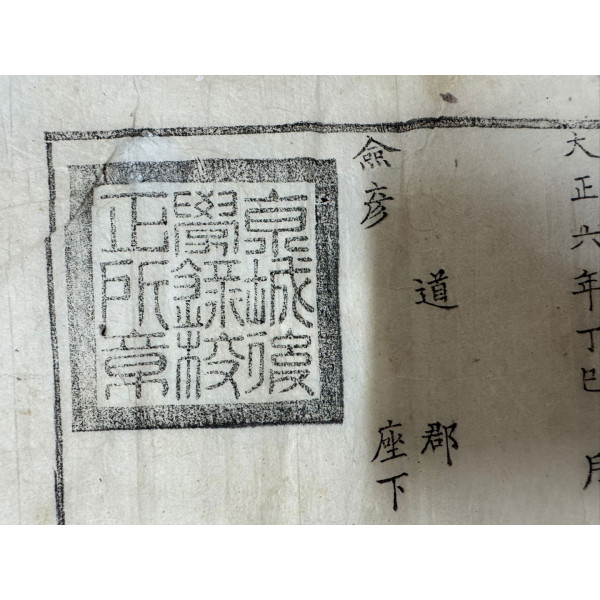 大正六年丁巳 月
道 郡
僉彦 座下
京城後
學錄校
正所章